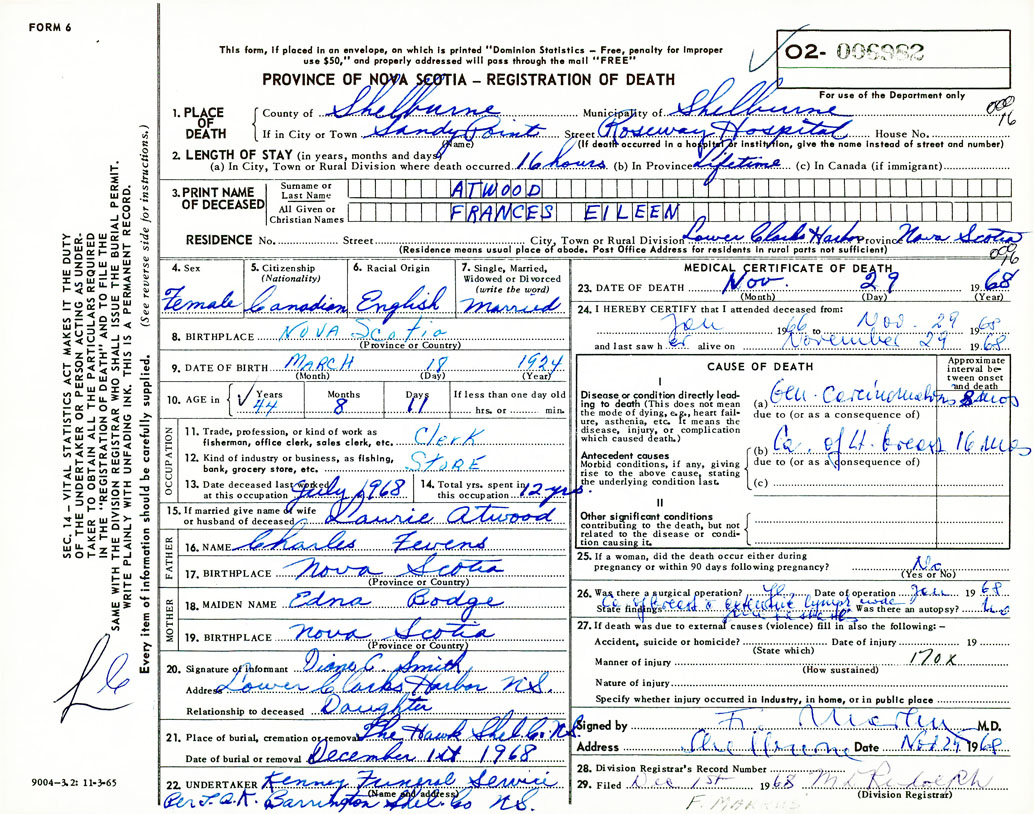 FORM 6
This form, if placed in an envelope, on which is printed "Dominion Statistics – Free, penalty for improper
use $50," and properly addressed will pass through the mail "FREE"
O2- 006982
PROVINCE OF NOVA SCOTIA – REGISTRATION OF DEATH
For use of the Department only
1. PLACE OF DEATH
County of Shelburne Municipality of Shelburne
If in City or Town Sandy Point Street Roseway Hospital House No.
(Name) (If death occurred in a hospital or institution, give the name instead of street and number)
2. LENGTH OF STAY (in years, months and days)
(a) In City, Town or Rural Division where death occurred 16 hours (b) In Province Lifetime (c) In Canada (if immigrant)
3. PRINT NAME OF DECEASED
Surname or Last Name ATWOOD
All Given or Christian Names FRANCES EILEEN
RESIDENCE No. Street City, Town or Rural Division Lower Clarks Harbor Province Nova Scotia
(Residence means usual place of abode. Post Office Address for residents in rural parts not sufficient)
4. Sex Female
5. Citizenship (Nationality) Canadian
6. Racial Origin English
7. Single, Married, Widowed or Divorced (write the word) Married
8. BIRTHPLACE NOVA Scotia
(Province or Country)
9. DATE OF BIRTH MARCH 18 1924
(Month) (Day) (Year)
10. AGE in Years 44 Months 8 Days 11 If less than one day old
hrs. or min.
OCCUPATION
11. Trade, profession or kind of work as
fisherman, office clerk, sales clerk, etc. Clerk
12. Kind of industry or business, as fishing,
bank, grocery store, etc. STORE
13. Date deceased last worked at this occupation July 1968
14. Total yrs. spent in this occupation 12 yrs.
15. If married give name of wife
or husband of deceased Laurie Atwood
FATHER
16. NAME Charles Fevens
17. BIRTHPLACE Nova Scotia
(Province or Country)
MOTHER
18. MAIDEN NAME Edna Bodge
19. BIRTHPLACE Nova Scotia
(Province or Country)
20. Signature of informant Diane C. Smith
Address Lower Clarks Harbor N.S.
Relationship to deceased Daughter
21. Place of burial, cremation or removal The Hawk Shel. Co. N.S.
Date of burial or removal December 1st 1968
22. UNDERTAKER Kenney Funeral Service
(Name and address)
Per Barrington Shel. Co N.S.
MEDICAL CERTIFICATE OF DEATH
23. DATE OF DEATH Nov. 29 1968
(Month) (Day) (Year)
24. I HEREBY CERTIFY that I attended deceased from:
Jan 1966 to Nov. 29 1968
and last saw her alive on November 29 1968
CAUSE OF DEATH
Approximate interval between onset and death
I
Disease or condition directly leading to death (This does not mean the mode of dying, e.g., heart failure, asthenia, etc. It means the disease, injury, or complication which caused death.)
(a) Gen. Carcinomatosis 8 mos
due to (or as a consequence of)
Antecedent causes
Morbid conditions, if any, giving rise to the above cause, stating the underlying condition last.
(b) Ca. of lt. breast 16 mos
due to (or as a consequence of)
(c)
II
Other significant conditions
contributing to the death, but not related to the disease or condition causing it.
25. If a woman, did the death occur either during
pregnancy or within 90 days following pregnancy? No
(Yes or No)
26. Was there a surgical operation? Date of operation Jan 1968
State findings Ca of breast extensive lymph node Was there an autopsy? No
27. If death was due to external causes (violence) fill in also the following: –
Accident, suicide or homicide? Date of injury 19
(State which)
Manner of injury 170X
(How sustained)
Nature of injury
Specify whether injury occurred in Industry, in home, or in public place
Signed by M.D.
Address Shelburne Date Nov. 29 1968
28. Division Registrar's Record Number
29. Filed Dec 1st 1968
(Division Registrar)
SEC. 14 – VITAL STATISTICS ACT MAKES IT THE DUTY
OF THE UNDERTAKER OR PERSON ACTING AS UNDER-
TAKER TO OBTAIN ALL THE PARTICULARS REQUIRED
IN THE "REGISTRATION OF DEATH" AND TO FILE THE
SAME WITH THE DIVISION REGISTRAR WHO SHALL ISSUE THE BURIAL PERMIT.
WRITE PLAINLY WITH UNFADING INK. THIS IS A PERMANENT RECORD.
Every item of information should be carefully supplied. (See reverse side for instructions.)
9004-3.2: 11-3-65